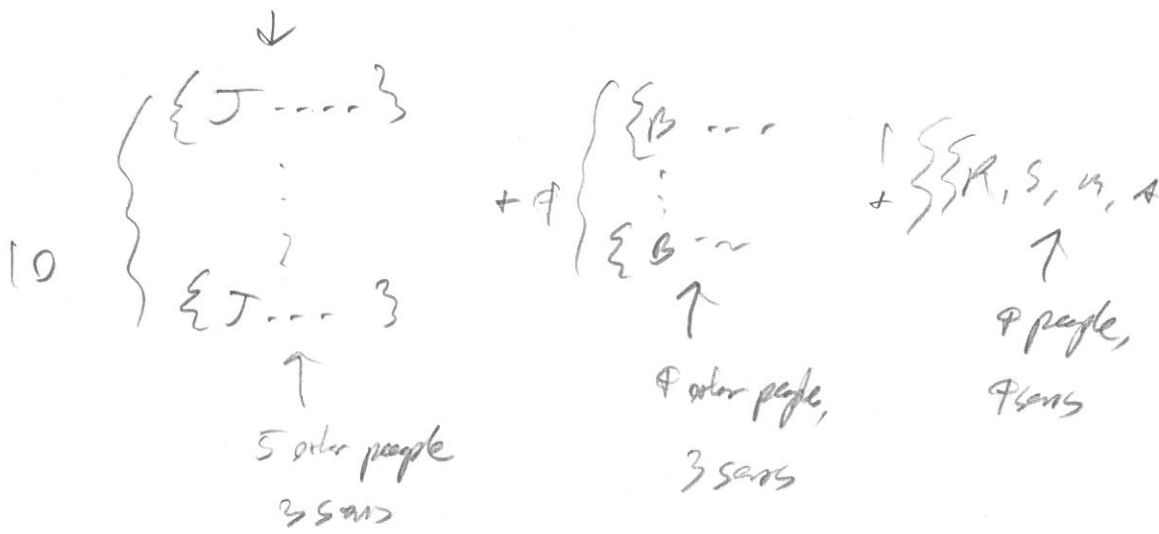 ↓
{ J - - - - }
10
{ J . . . }
↑
5 other people
3 seats
+ 4
{ B - - -
{ B - ~
↑
4 other people,
3 seats
+ { { R, S, M, A
↑
4 people,
4 seats